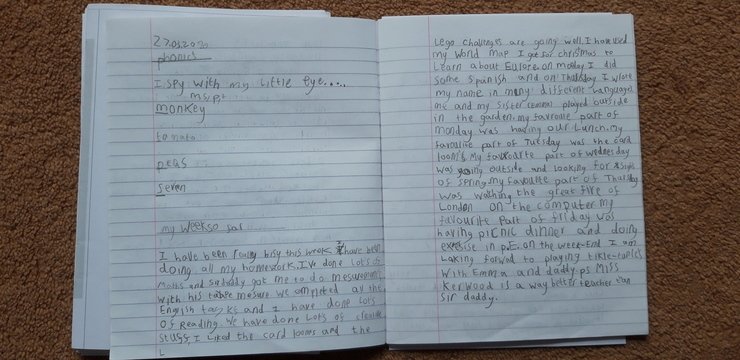 27.03.2020
phonics
I spy with my little eye....
m,s,p,t
monkey
tomato
pegs
seven
my week so far
I have been really bisy this week. I have been
doing all my homework. I've done lots of
Maths and sir daddy got me to do mesurements
with his tabpe mesure we completed all the
English tasks and I have done lots
of Reading. We have done lots of
stuff, I liked the card looms and the
L
Lego challenges are going well. I have used
my world map I got for christmas to
Learn about Europe. on monday I did
some Spanish and on Thursday I wrote
my name in many different Languages.
me and my sister (emma) played outside
in the garden. my favroute part of
monday was having our lunch. my
favourite part of Tuesday was the card
looms. My favourite part of wednesday
was going outside and looking for signs
of spring. my favourite part of Thursday
was wathing the great fire of
London on the computer. my
favourite part of friday was
having picnic dinner and doing
exesise in p.E. on the week-end I am
Laking forwad to playing tikle-topics
with Emma and daddy. ps Miss
Kerwood is a way better teacher than
sir daddy.